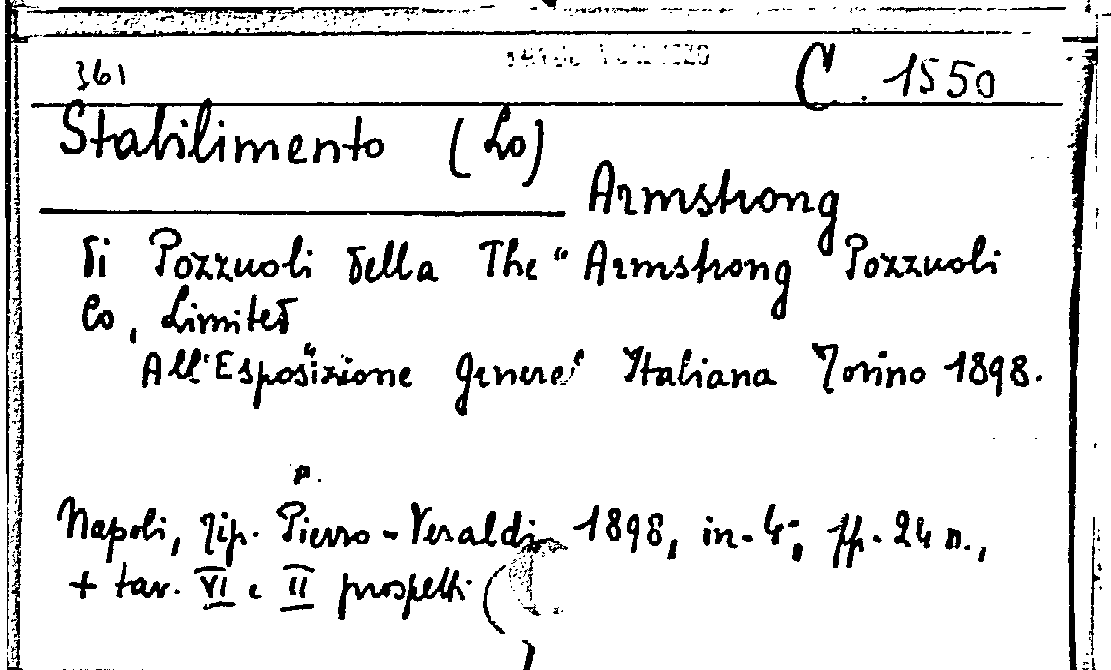 361
C. 1550
Stabilimento (Lo)
Armstrong
di Pozzuoli della The "Armstrong Pozzuoli
Co, Limited
All'Esposizione Italiana Torino 1898.
P.
Napoli, Tip. Pierro - Veraldi 1898, in-4°; ff. 24 n.,
+ tav. VI e II prospetti